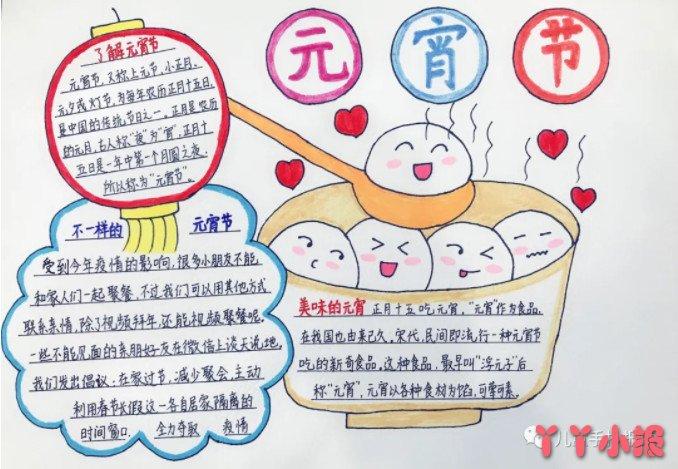 元宵节
了解元宵节
元宵节，又称上元节，小正月，
元夕或灯节，为每年农历正月十五日，
是中国的传统节日之一。正月是农历
的元月，古人称“夜”为“宵”，正月十
五日是一年中第一个月圆之夜，
所以称为“元宵节”。
不一样的 元宵节
受到今年疫情的影响，很多小朋友不能
和家人们一起聚餐，不过我们可以用其他方式
联系亲情，除了视频拜年，还能视频聚餐呢。
一些不能见面的亲朋好友在微信上谈天说地。
我们发出倡议：在家过节，减少聚会，主动
利用春节长假这一各自居家隔离的
时间窗口， 全力夺取 疫情
美味的元宵 正月十五吃元宵，“元宵”作为食品，
在我国也由来已久。宋代，民间即流行一种元宵节
吃的新奇食品。这种食品，最早叫“浮元子”后
称“元宵”，元宵以各种食材为馅，可荤可素。
丫丫小报